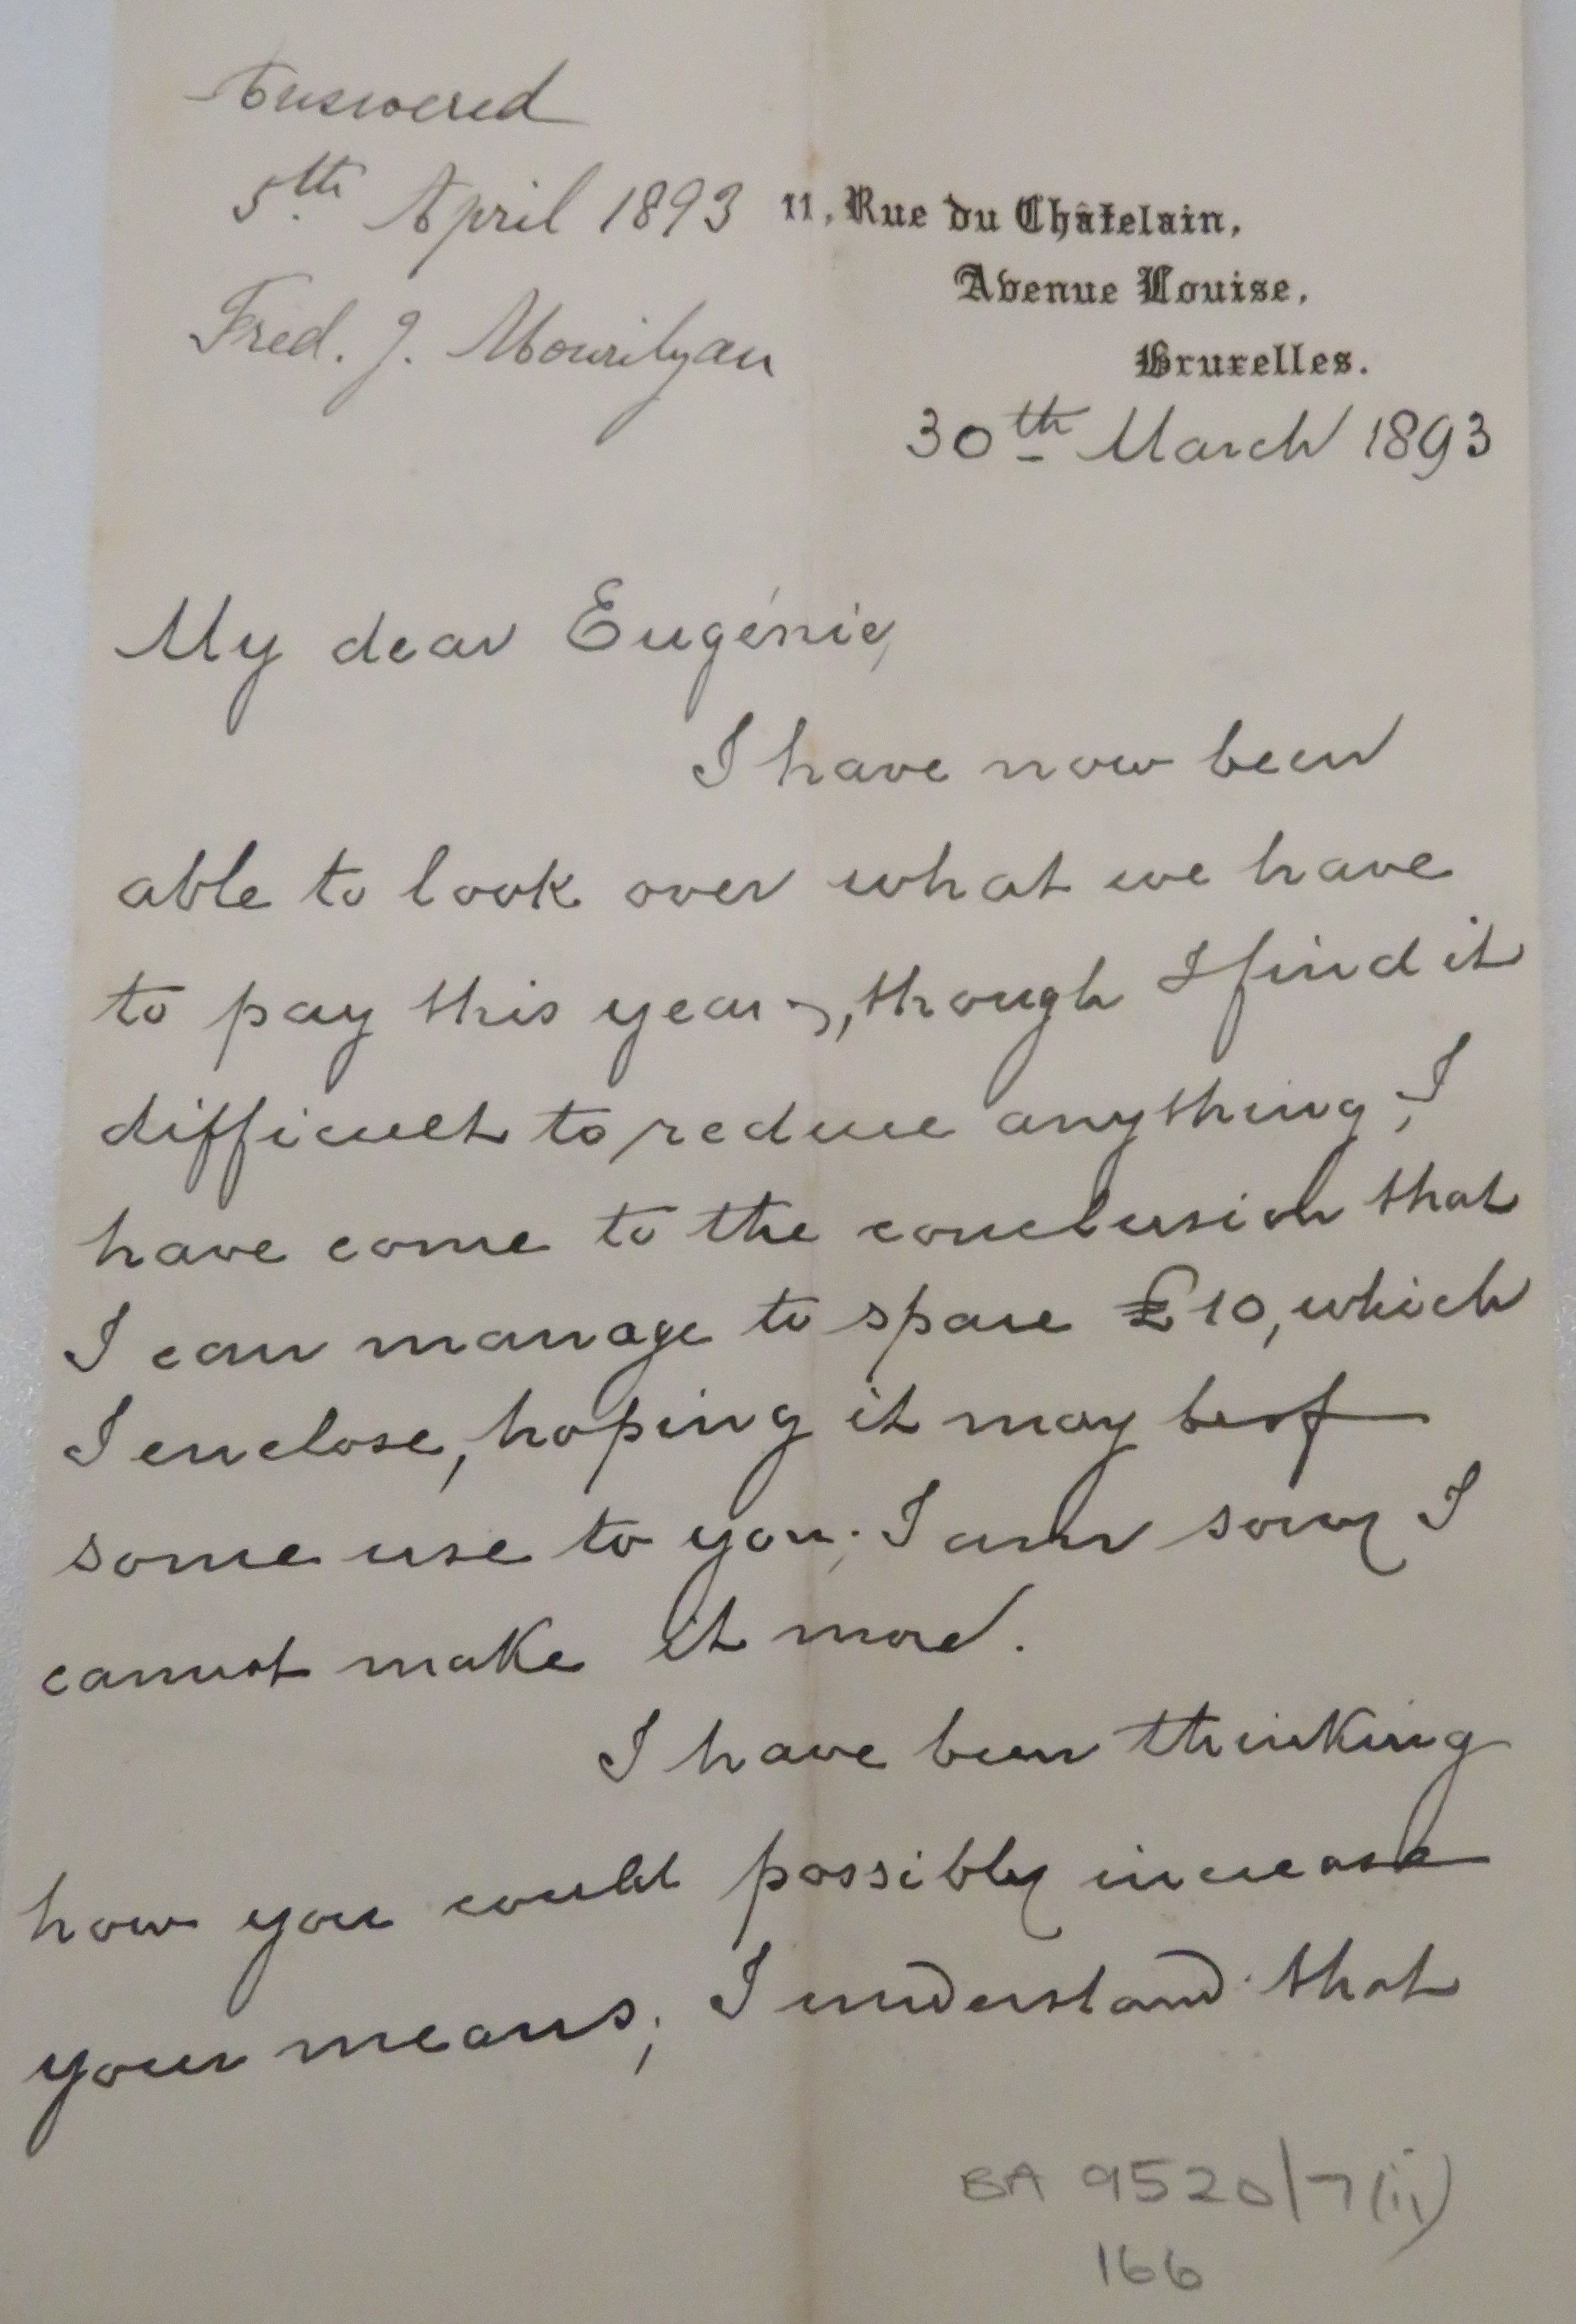 Answered
5th April 1893
Fred. J. Mourilyan
11, Rue du Châtelain,
Avenue Louise,
Bruxelles.
30th March 1893
My dear Eugénie,
I have now been
able to look over what we have
to pay this year, though I find it
difficult to reduce anything, I
have come to the conclusion that
I can manage to spare £10, which
I enclose, hoping it may be of
some use to you; I am sorry I
cannot make it more.
I have been thinking
how you could possibly increase
your means; I understand that
BA 9520/7(ii)
166